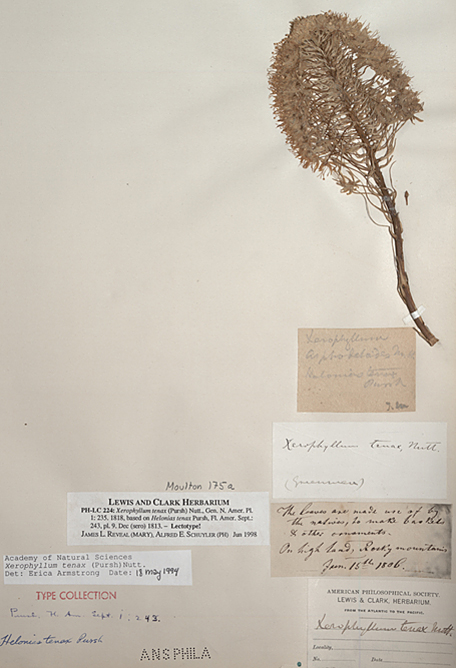 Xerophyllum
Asphodeloides Nutt.
Helonias tenax
Pursh
T. M
Xerophyllum tenax, Nutt.
Moulton 175a
LEWIS AND CLARK HERBARIUM
PH-LC 224: Xerophyllum tenax (Pursh) Nutt., Gen. N. Amer. Pl.
1: 235. 1818, based on Helonias tenax Pursh, Fl. Amer. Sept.:
243, pl. 9, Dec (sero) 1813. – Lectotype!
JAMES L. REVEAL (MARY), ALFRED E. SCHUYLER (PH) Jun 1998
The leaves are made use of by
the natives, to make baskets
& other ornaments.
On high land, Rocky mountains
Jun. 15th 1806.
Academy of Natural Sciences
Xerophyllum tenax (Pursh) Nutt.
Det: Erica Armstrong Date: 13 May 1994
TYPE COLLECTION
Pursh, Fl. Am. Sept. 1: 243.
Helonias tenax Pursh
ANSPHILA
AMERICAN PHILOSOPHICAL SOCIETY.
LEWIS & CLARK, HERBARIUM.
FROM THE ATLANTIC TO THE PACIFIC.
Xerophyllum tenax Nutt.
Locality,
No. Date,